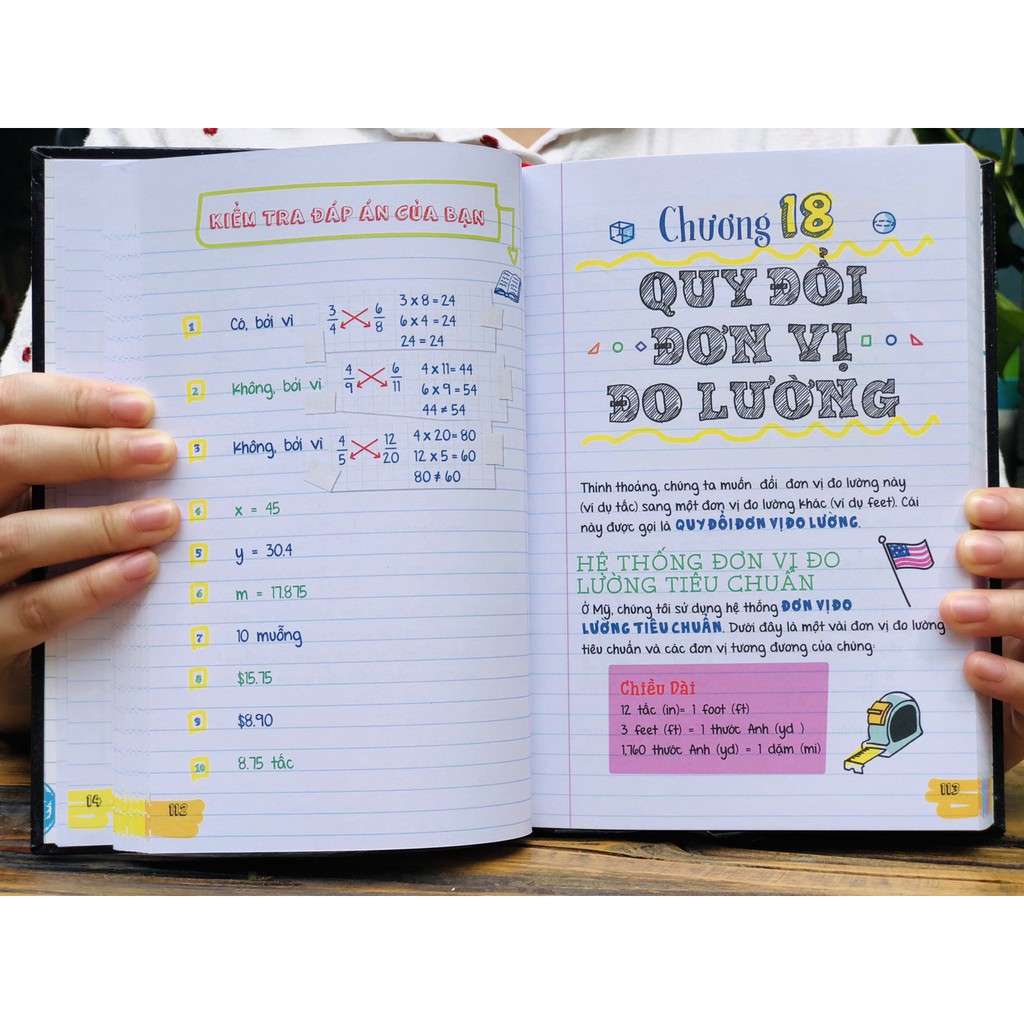 KIỂM TRA ĐÁP ÁN CỦA BẠN
1 Có, bởi vì 3/4 6/8 3 x 8 = 24
6 x 4 = 24
24 = 24
2 Không, bởi vì 4/9 6/11 4 x 11 = 44
6 x 9 = 54
44 ≠ 54
3 Không, bởi vì 4/5 12/20 4 x 20 = 80
12 x 5 = 60
80 ≠ 60
4 x = 45
5 y = 30.4
6 m = 17.875
7 10 muỗng
8 $15.75
9 $8.90
10 8.75 tấc
14
112
Chương 18
QUY ĐỔI
ĐƠN VỊ
ĐO LƯỜNG
Thỉnh thoảng, chúng ta muốn đổi đơn vị đo lường này
(ví dụ tấc) sang một đơn vị đo lường khác (ví dụ feet). Cái
này được gọi là QUY ĐỔI ĐƠN VỊ ĐO LƯỜNG.
HỆ THỐNG ĐƠN VỊ ĐO
LƯỜNG TIÊU CHUẨN
Ở Mỹ, chúng tôi sử dụng hệ thống ĐƠN VỊ ĐO
LƯỜNG TIÊU CHUẨN. Dưới đây là một vài đơn vị đo lường
tiêu chuẩn và các đơn vị tương đương của chúng:
Chiều Dài
12 tấc (in)= 1 foot (ft)
3 feet (ft) = 1 thước Anh (yd )
1,760 thước Anh (yd) = 1 dặm (mi)
113